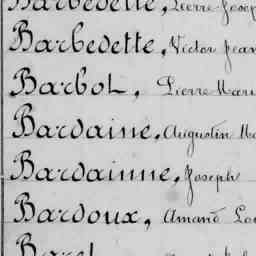 Barbedette, Pierre Josep
Barbedette, Victor Jean
Barbot, Pierre Mari
Bardaine, Augustin Ma
Bardainne, Joseph
Bardoux, Amand Lou
Barel